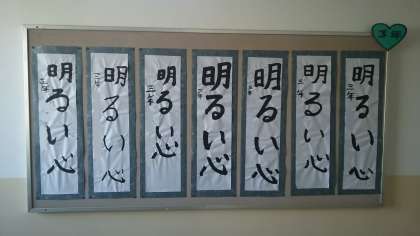 明るい心
三年
明るい心
三年
明るい心
明るい心
明るい心
三年
明るい心
明るい心
三年